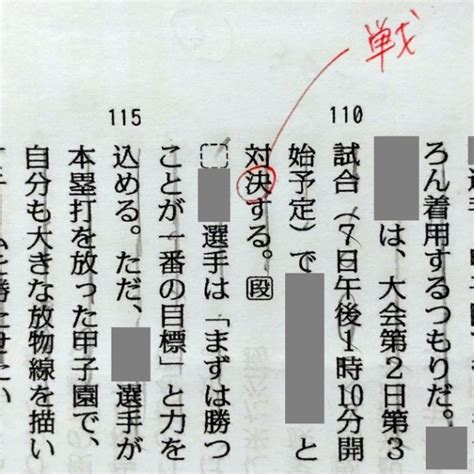 戦
110
115
ろん着用するつもりだ。
は、大会第2日第3
試合（7日午後1時10分開
始予定）で と
対決する。段
選手は「まずは勝つ
ことが一番の目標」と力を
込める。ただ、 選手が
本塁打を放った甲子園で、
自分も大きな放物線を描い